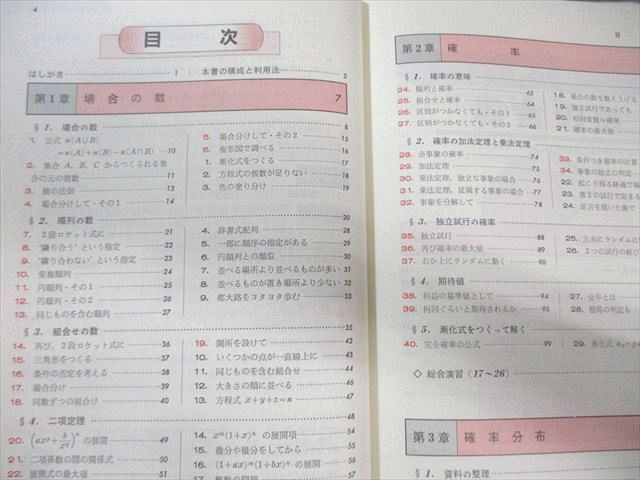 4
目 次
はしがき 1
本書の構成と利用法 2
第1章 場合の数 7
§1. 場合の数 8
1. 公式 n(A∪B)
=n(A)+n(B)−n(A∩B) 10
2. 集合 A, B, C からつくられる集
合の元の個数 11
3. 積の法則 13
4. 場合分けして・その1 14
5. 場合分けして・その2 15
6. 樹形図で調べる 16
1. 漸化式をつくる 17
2. 方程式の個数が足りない 18
3. 色の塗り分け 19
§2. 順列の数 20
7. 2段ロケット式に 21
8. “隣り合う”という指定 22
9. “隣り合わない”という指定 23
10. 重複順列 24
11. 円順列・その1 25
12. 円順列・その2 26
13. 同じものを含む順列 27
4. 辞書式配列 28
5. 一部に順序の指定がある 29
6. 円順列の類似 30
7. 並べる場所より並べるものが多い 31
8. 並べるものが置き場所より少ない 32
9. 都大路をヨタヨタ歩む 33
§3. 組合せの数 35
14. 再び，2段ロケット式に 36
15. 三角形をつくる 37
16. 条件の否定を考える 38
17. 場合分け 39
18. 同数ずつの組分け 40
19. 関所を設けて 42
10. いくつかの点が一直線上に 43
11. 同じものを含む組合せ 44
12. 大きさの順に並べる 46
13. 方程式 x+y+z=n 47
§4. 二項定理 48
20. (ax^p+b/x^q)^n の展開 49
21. 二項係数の間の関係式 50
22. 展開式の最大項 51
14. x^m(1+x)^n の展開項 54
15. 微分や積分をしてから 55
16. (1+ax)^m(1+bx)^n の展開 56
目
第2章 確 率
§1. 確率の意味
24. 順列と確率 63
25. 組合せと確率 64
26. 区別がつかなくても・その1 65
27. 区別がつかなくても・その2 66
18. 場合の数を数え上げる
19. 独立試行であっても
20. 相対度数と確率
21. 確率の最大値
§2. 確率の加法定理と乗法定理
28. 余事象の確率 74
29. 加法定理 75
30. 乗法定理，独立な事象の場合 76
31. 乗法定理，従属する事象の場合 77
32. 事象を分解して 78
33. 条件つき確率の計算
34. 事象の独立の判定
22. 起こり得る経過で
23. 第2の試行で定まる
24. 証言を聞いた後で
§3. 独立試行の確率
35. 独立試行 88
36. 再び確率の最大値 89
37. 右か上にランダムに動く 90
25. 左右にランダムに
26. 2つの試行の結び
§4. 期待値
38. 利益の基準値として 94
39. 何回ぐらいと期待されるか 95
27. 公平とは
28. 賠局の判定も
§5. 漸化式をつくって解く
40. 完全確率の公式 99
29. 漸化式
◇ 総合演習（17〜26）
第3章 確率分布
§1. 資料の整理